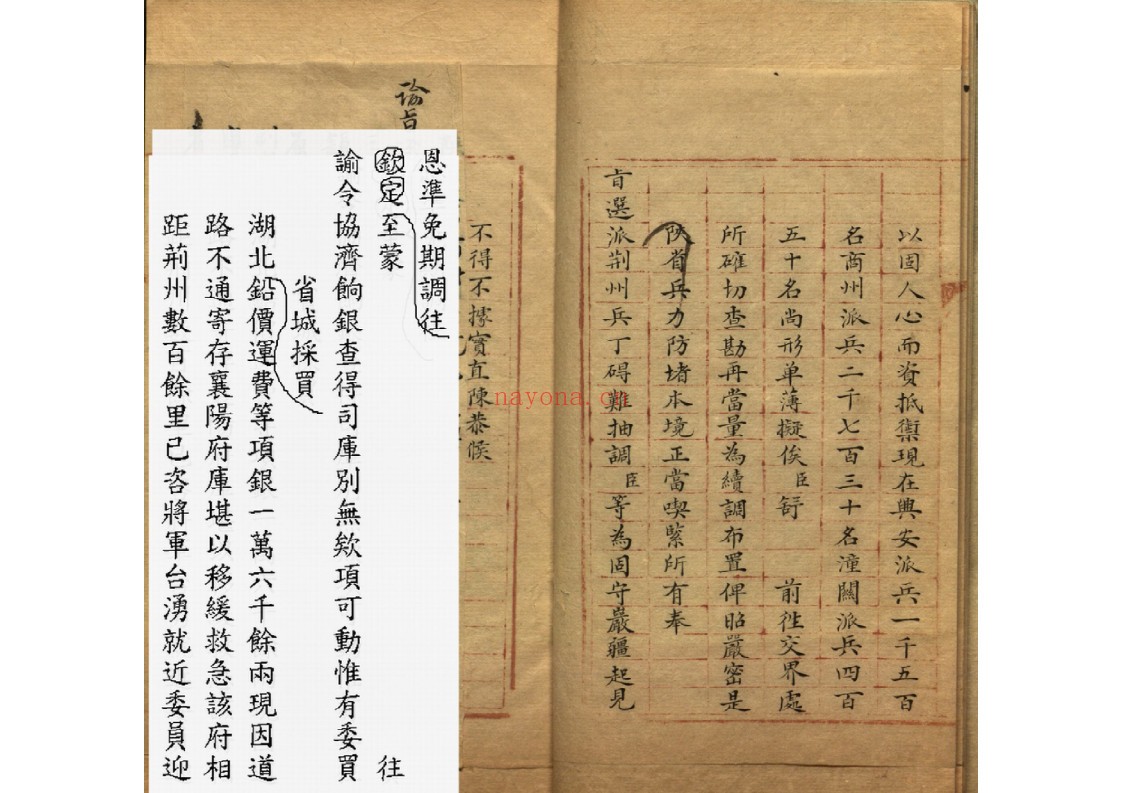 以固人心而資抵禦現在興安派兵一千五百
名商州派兵二千七百三十名潼關派兵四百
五十名尚形单薄擬俟臣舒 前徃交界處
所確切查勘再當量為續調布置俾昭嚴密是
陝省兵力防堵本境正當喫緊所有奉
旨選派荆州兵丁碍難抽調臣等為固守嚴疆起見
不得不據實直陳恭候
諭旨
恩準免期調往
欽定至蒙 往
諭令協濟餉銀查得司庫別無欸項可動惟有委買
省城採買
湖北鉛價運費等項銀一萬六千餘兩現因道
路不通寄存襄陽府庫堪以移緩救急該府相
距荊州數百餘里已咨將軍台湧就近委員迎
nayona.cn